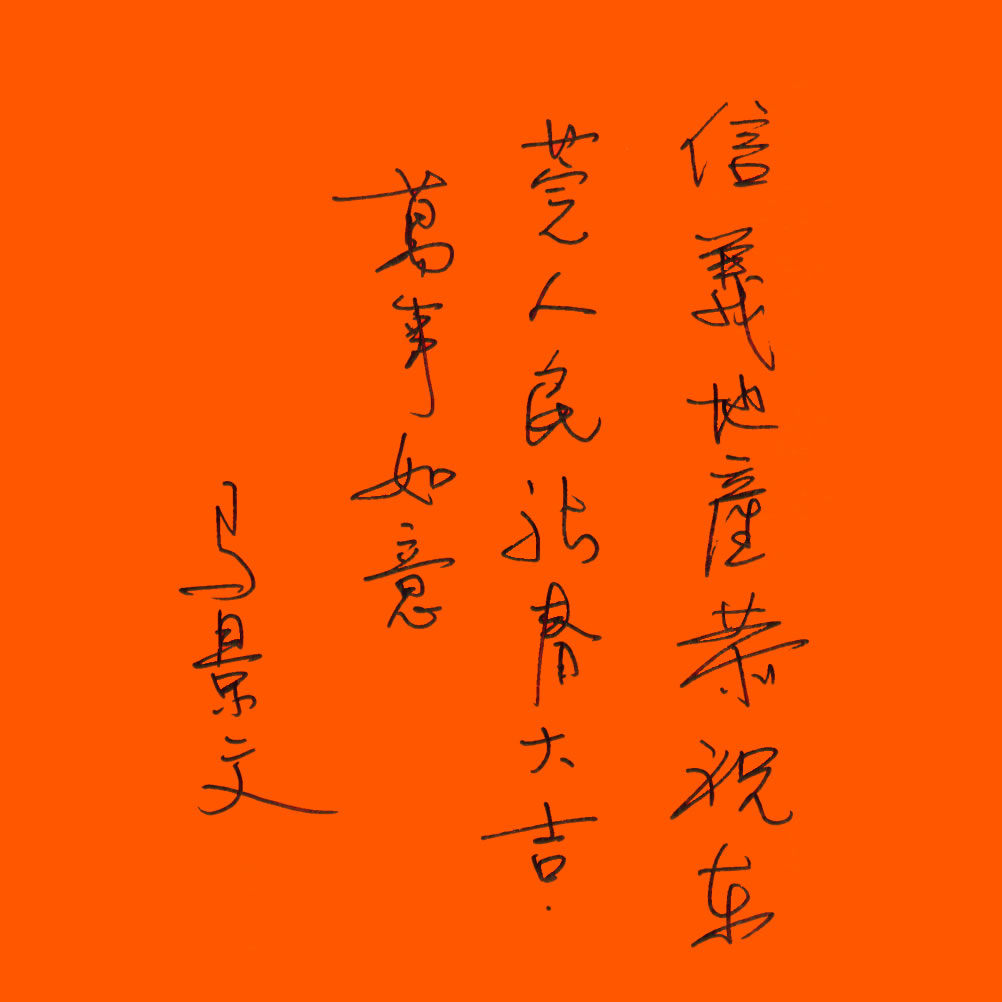 信義地産恭祝东
莞人民新春大吉.
萬事如意
马景文